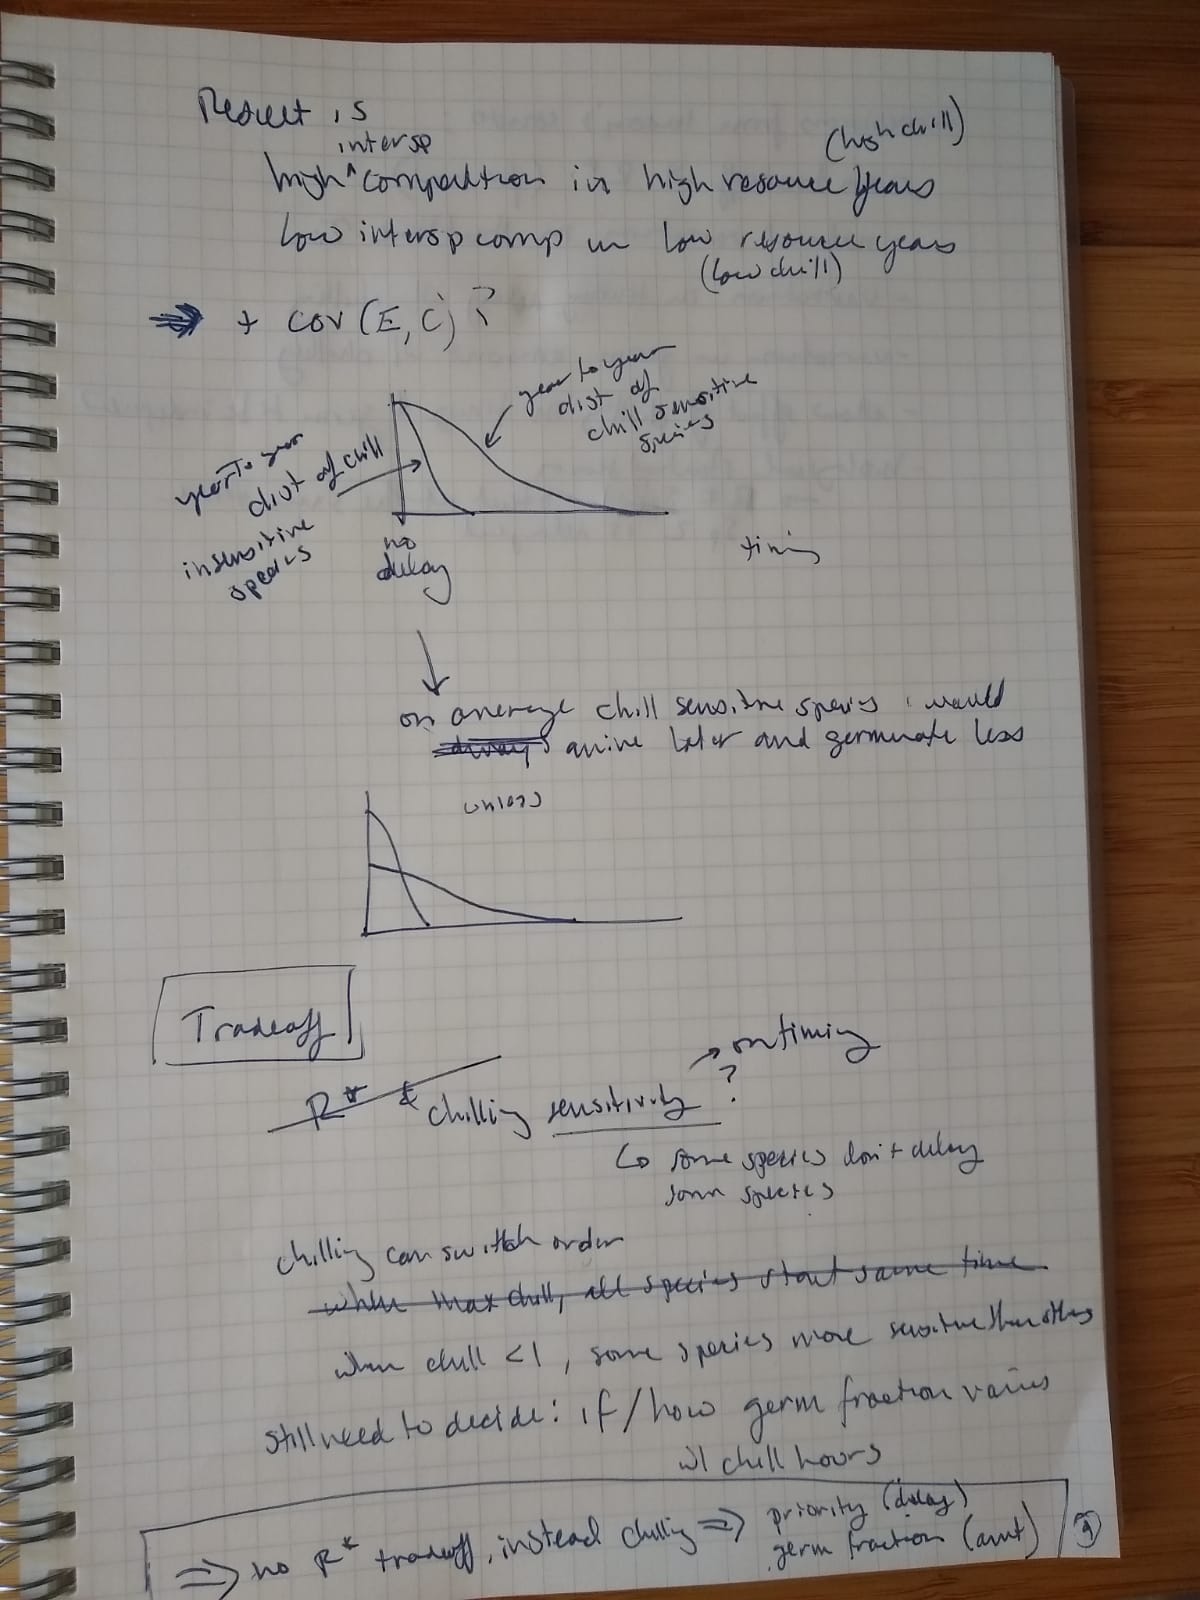 Result is
intersp
high ^ competition in high resource years
(high chill)
low intersp comp in low resource years
(low chill)
⇒ + cov (E, C) ?
year to year
dist of
chill sensitive
species
year to year
dist of chill
insensitive
species
no
delay
timing
on average chill sensitive species would
always arrive later and germinate less
unless
Tradeoff
R* & chilling sensitivity ?
→ on timing
↳ some species don't delay
some species
chilling can switch order
when max chill, all species start same time
when chill <1, some species more sensitive than others
still need to decide: if/how germ fraction varies
w/ chill hours
⇒ no R* tradeoff, instead chilling ⇒ priority (delay)
germ fraction (amt)